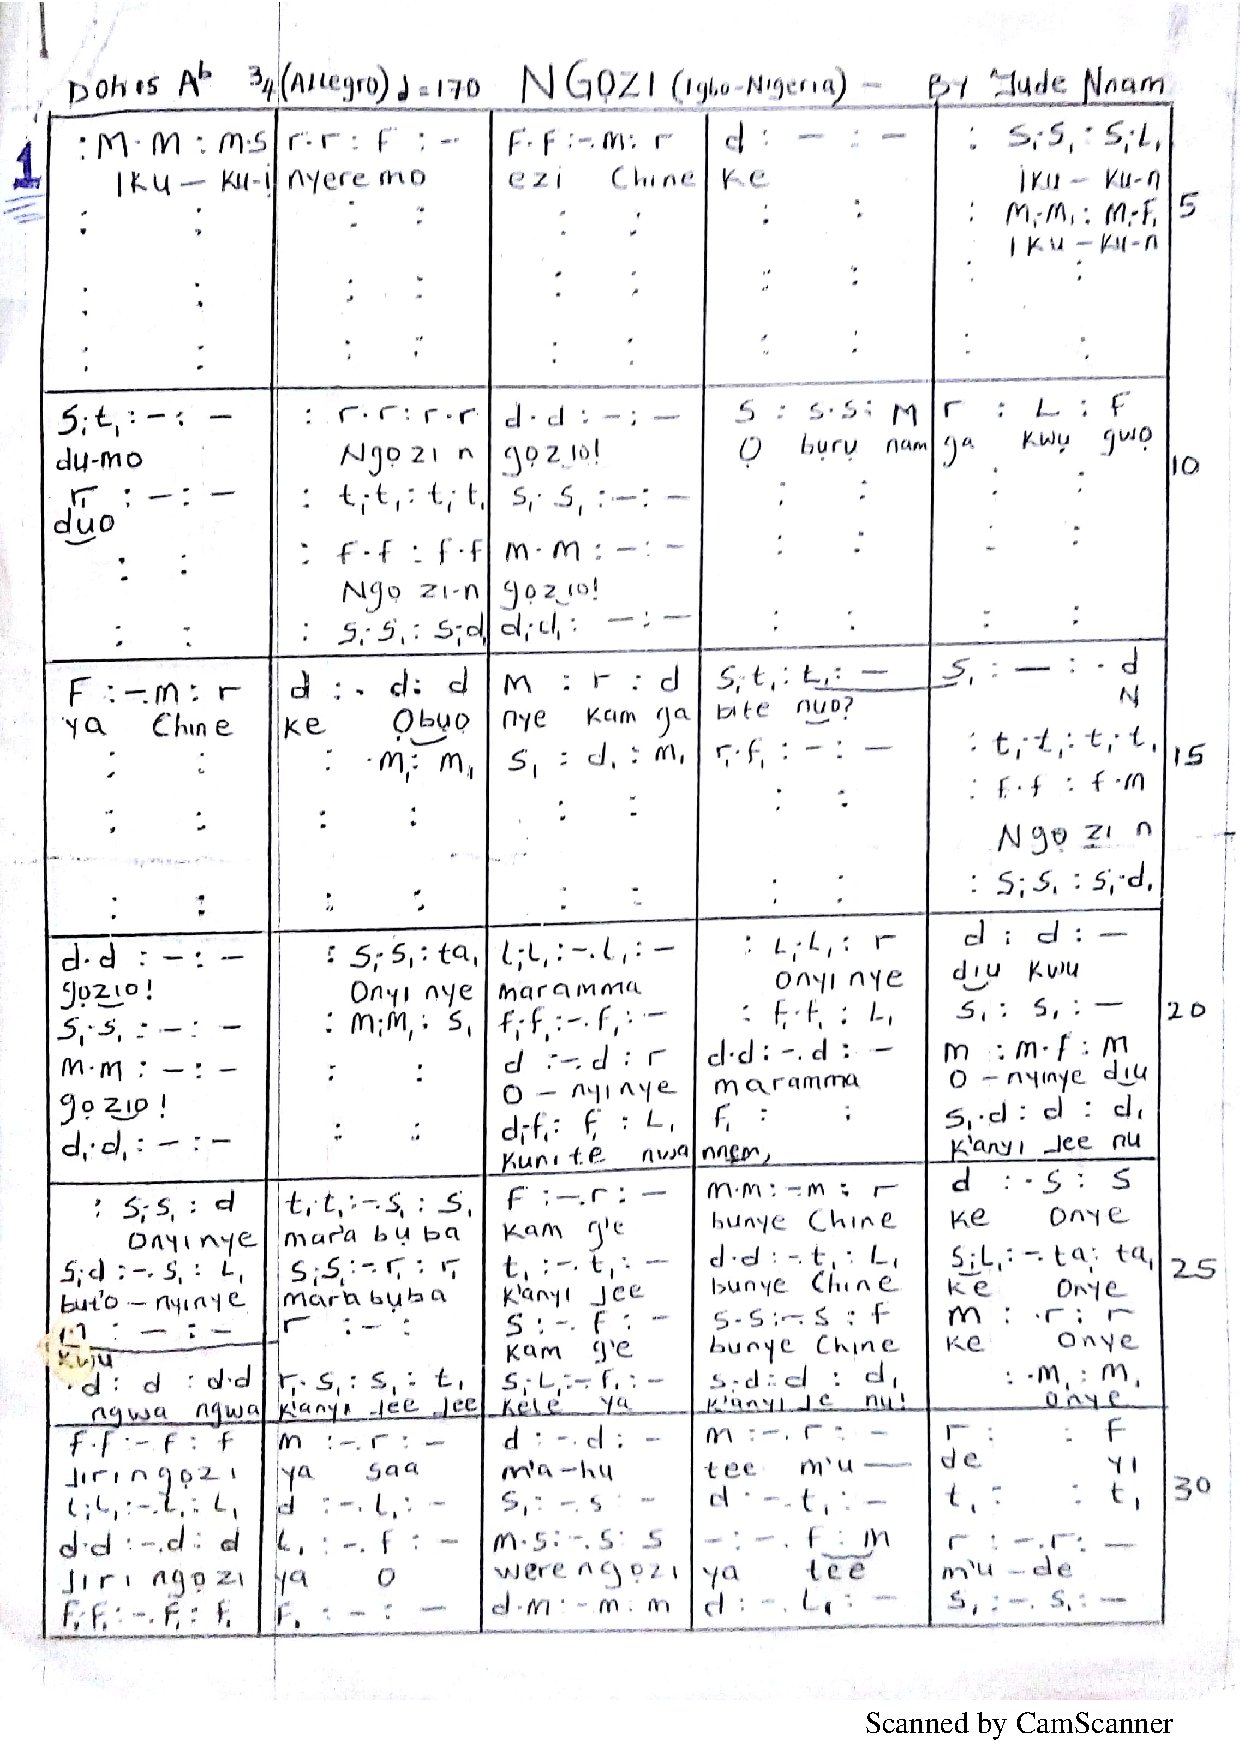 Doh is Ab 3/4 (Allegro) d = 170 NGỌZI (Igbo-Nigeria) - By Jude Nnam
1
:M.M : m.s | r.r : F : - | F.F :-.m : r | d : - : - | : S₁.S₁ : S₁.L₁
IKU - KU-i | nyere mo | ezi Chine | ke | IKU - KU-n
: : | : : | : : | : : | : M₁.M₁ : M₁.F₁ 5
IKU - KU-n
: : | : : | : : | : : | : :
: : | : : | : : | : : | : :
S₁.t₁ : - : - | : r.r : r.r | d.d : - : - | S : S.S : M | r : L : F
du-mo | Ngọzi n | gọzio! | Ọ bụrụ nam | ga kwụ gwọ
r₁ : - : - | : t₁.t₁ : t₁.t₁ | S₁.S₁ : - : - | : : | : : 10
duo
: : | : f.f : f.f | m.m : - : - | : : | : :
Ngọ zi-n | gọzio!
: : | : S₁.S₁ : S₁.d₁ | d₁.d₁ : - : - | : : | : :
F : -.m : r | d : . d : d | m : r : d | S₁.t₁ : t₁ : - | S₁ : - : . d
ya Chine | ke Ọbụọ | nye kam ga | bite nuo? | N
: : | : .m₁ : m₁ | S₁ : d₁ : m₁ | r₁.f₁ : - : - | : t₁.t₁ : t₁.t₁ 15
: : | : : | : : | : : | : f.f : f.m
Ngọ zi n
: : | : : | : : | : : | : S₁.S₁ : S₁.d₁
d.d : - : - | : S₁.S₁ : ta₁ | L₁.L₁ : -.L₁ : - | : L₁.L₁ : r | d : d : -
gọzio! | Onyi nye | maramma | onyi nye | diu kwu
S₁.S₁ : - : - | : m₁.m₁ : S₁ | f₁.f₁ : -.f₁ : - | : f₁.f₁ : L₁ | S₁ : S₁ : - 20
m.m : - : - | : : | d : -.d : r | d.d : -.d : - | m : m.f : m
gọzio! | O - nyinye | maramma | O - nyinye diu
d₁.d₁ : - : - | : : | d₁.f₁ : f₁ : L₁ | f₁ : : | S₁.d : d : d₁
Kunite nwa | nnem, | k'anyi Jee nu
: S₁.S₁ : d | t₁.t₁ : -.S₁ : S₁ | F : -.r : - | m.m : -m : r | d : .S : S
Onyi nye | mar'a bụ ba | kam g'e | bunye Chine | ke onye
S₁.d : -.S₁ : L₁ | S₁.S₁ : -.r₁ : r₁ | t₁ : -.t₁ : - | d.d : -.t₁ : L₁ | S₁.L₁ : -.ta₁ : ta₁ 25
but'o - nyinye | mara bụba | k'anyi Jee | bunye Chine | ke onye
: - : - | r : - : | S : -.F : - | S.S : -.S : f | m : .r : r
kwu | kam g'e | bunye Chine | ke onye
.d : d : d.d | r₁.S₁ : S₁ : t₁ | S₁.L₁ : -.r₁ : - | S₁.d : d : d₁ | : .m₁ : m₁
ngwa ngwa | k'anyi Jee Jee | kele ya | k'anyi Je nu! | onye
f.f : -.f : f | m : -.r : - | d : -.d : - | m : -.r : - | r : : F
Jiri ngọzi | ya saa | m'a-hu | tee m'u - | de yi
L₁.L₁ : -.L₁ : L₁ | d : -.L₁ : - | S₁ : -.S : - | d : -.t₁ : - | t₁ : : t₁ 30
d.d : -.d : d | L₁ : -.f : - | m.S : -.S : S | - : -.f : m | r : -.r : -
Jiri ngọzi | ya o | were ngọzi | ya tee | m'u - de
F₁.F₁ : -.F₁ : F₁ | F₁ : - : - | d.m : -m : m | d : -.L₁ : - | S₁ : -.S₁ : -
Scanned by CamScanner